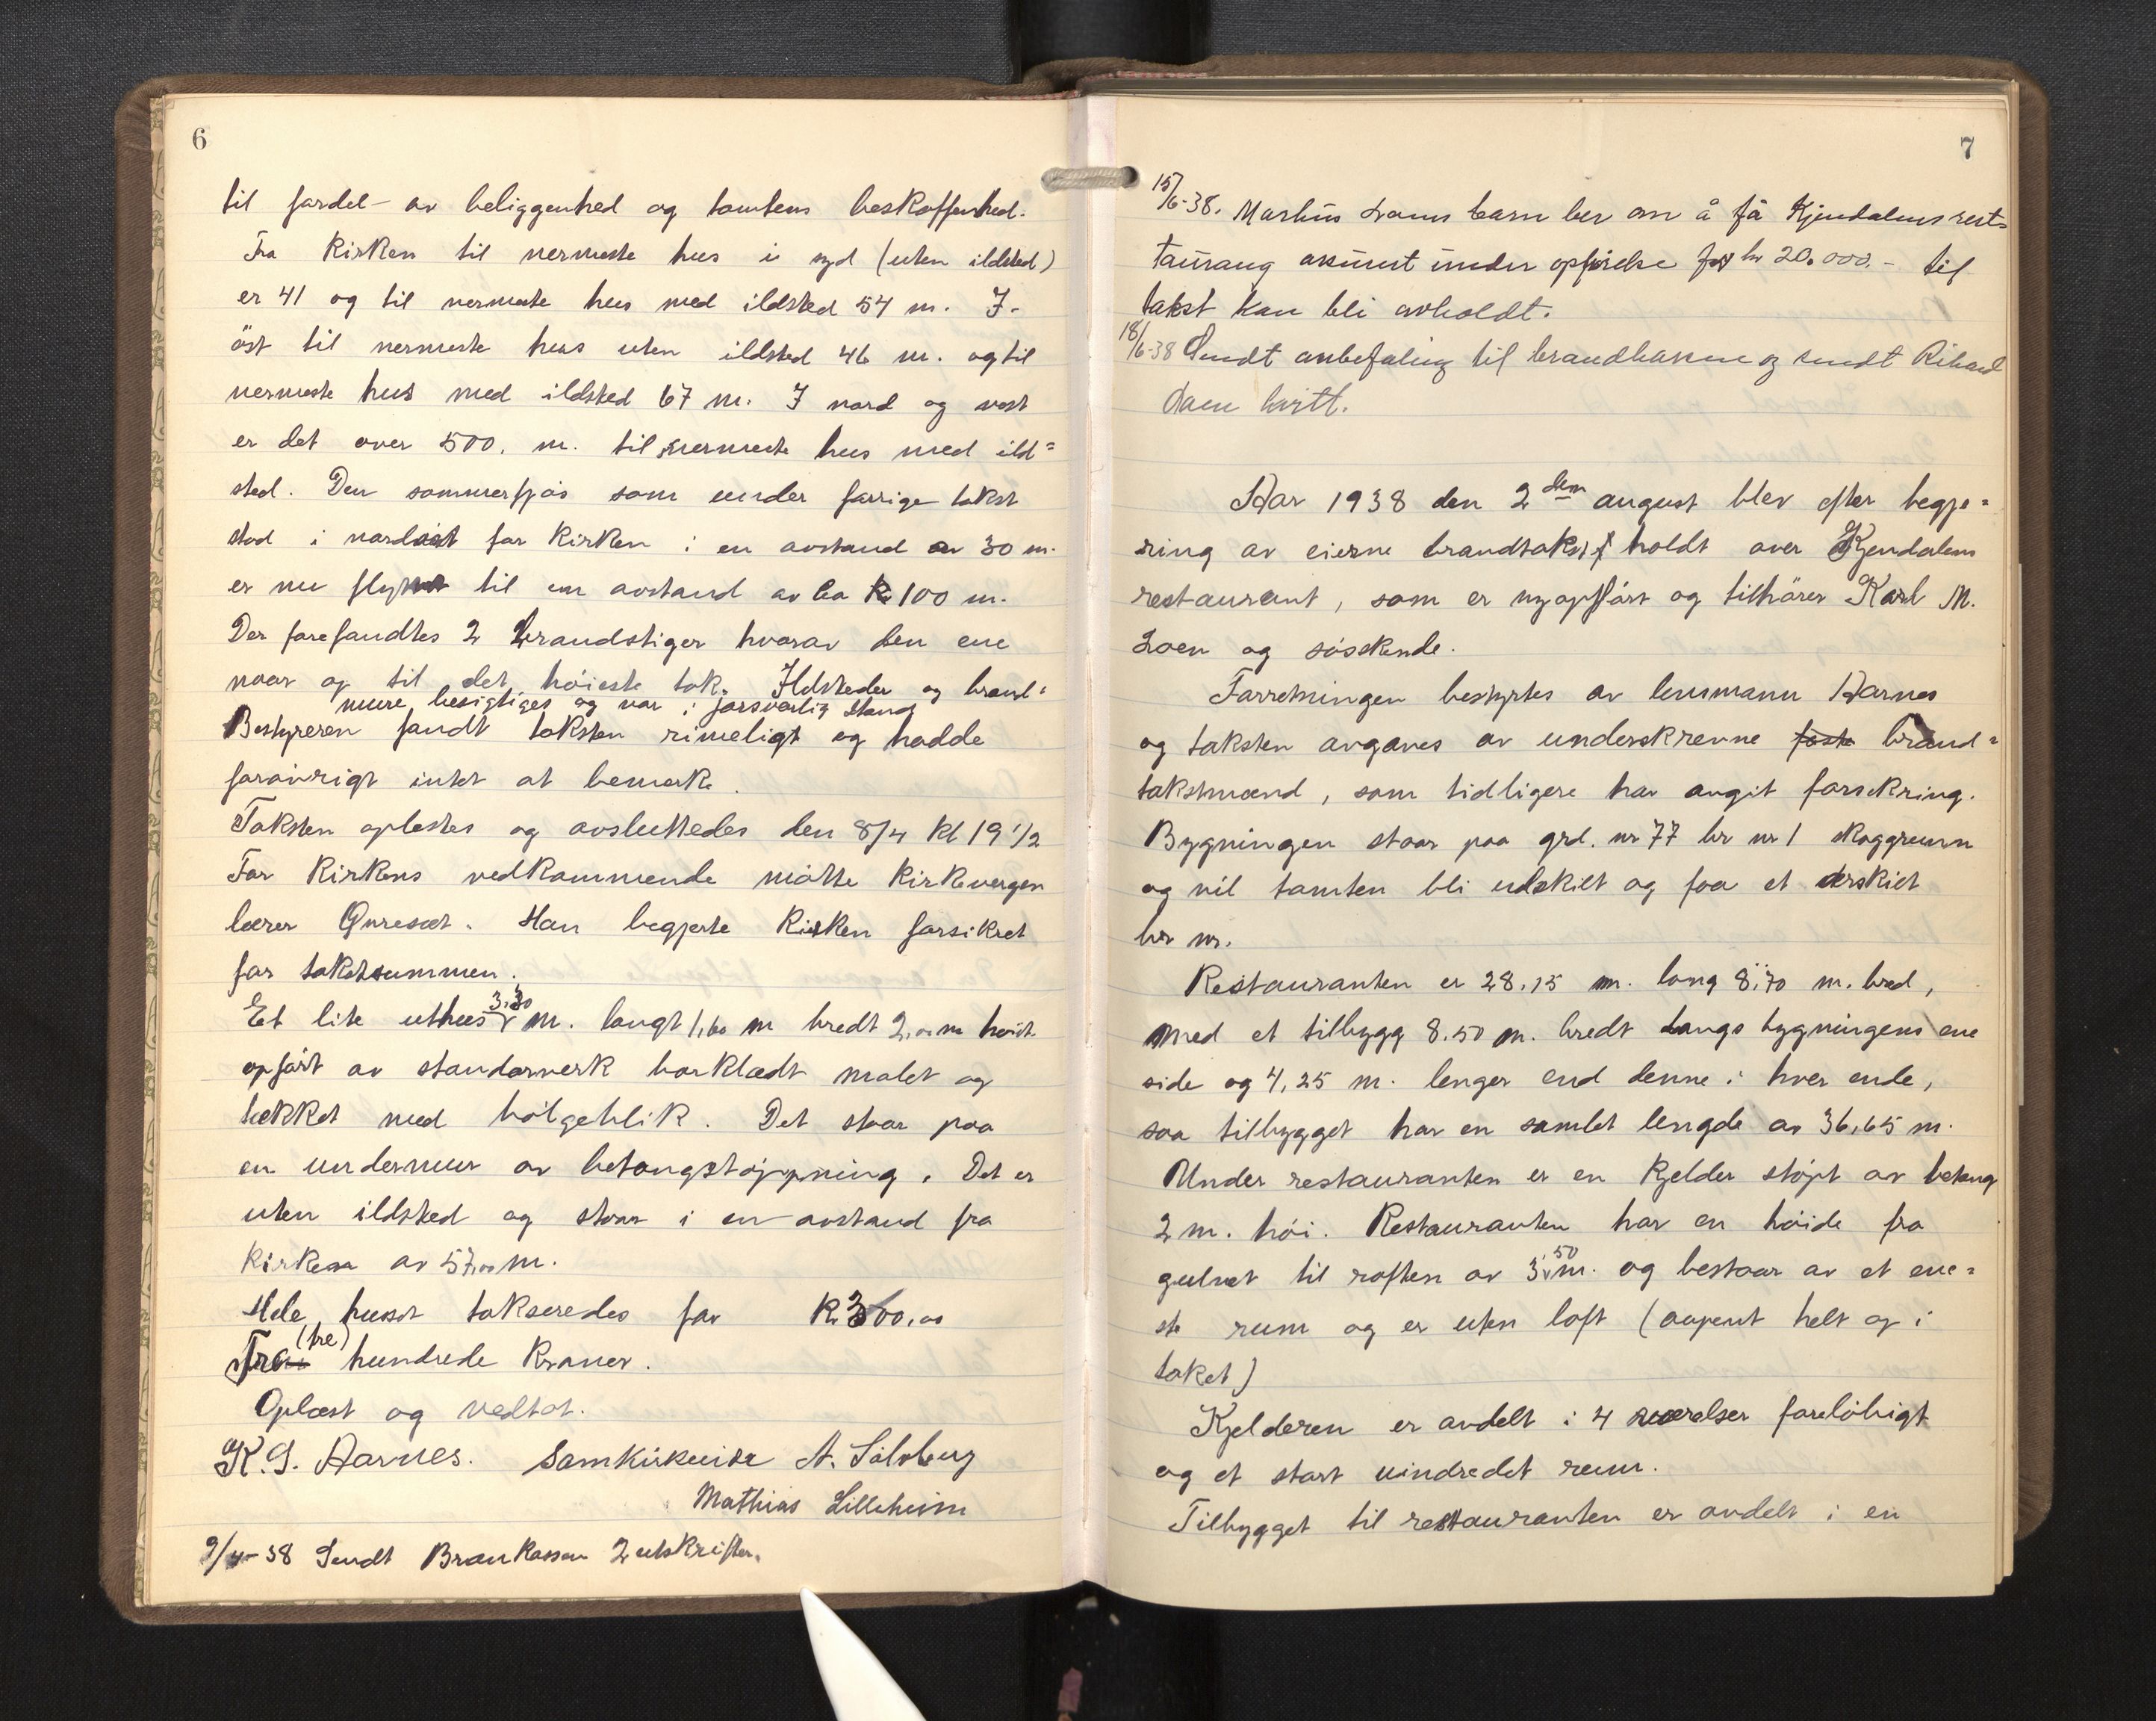 6
til fordel av beliggenhed og tomtens beskaffenhed.
Fra Kirken til nermeste hus i syd (uten ildsted)
er 41 og til nermeste hus med ildsted 54 m. I
öst til nermeste hus uten ildsted 46 m. og til
nermeste hus med ildsted 67 m. I nord og vest
er det over 500. m. til nermeste hus med ild=
sted. Den sommerfjøs som under forrige takst
stod i nordöst for Kirken i en avstand av 30 m.
er nu flyttet til en avstand av ca 100 m.
Der forefandtes 2 brandstiger hvorav den ene
naar op til det höieste tak. Ildsteder og brand=
mure besigtiges og var i forsvarlig stand
Bestyreren fandt taksten rimeligt og hadde
foröivrigt intet at bemerke.
Taksten oplestes og avsluttedes den 8/4 Kl 19 1/2
For Kirkens vedkommende mötte Kirkevergen
lærer Qvresæt. Han begjerte Kirken forsikret
for takstsummen.
Et lite uthus 3.30 m. langt 1,60 m bredt 2,00 m höit
opfört av standerverk borklædt malet og
tækket med bölgeblik. Det staar paa
en undermur av betongstöpning. Det er
uten ildsted og staar i en avstand fra
Kirken av 57,00 m.
Hele huset takseredes for Kr 300,00
Tre (tre) hundrede Kroner.
Oplæst og vedtat.
K. S. Aarnes. Samkirkeise A. Sölvberg
Mathias Lilleheim
9/4-38 Sendt Brankassen 2 utskrifter.
7
15/6-38. Markus Loens barn ber om å få Kjendalens rest=
taurang akünt under opførelse for kr 20.000.- til
takst kan bli avholdt.
18/6-38 Sendt anbefaling til brandkassen og sendt Rikard
Loen kvitt.
Aar 1938 den 2den august blev efter begje=
ring av eierne brandtakst holdt over Kjendalens
restaurant, som er nyopfört og tilhörer Karl M.
Loen og sösskende.
Forretningen bestyrtes av lensmann Aarnes
og taksten avgaves av underskrevne faste brand=
takstmænd, som tidligere har avgit forsikring.
Bygningen staar paa grd. nr 77 br nr 1 skoggrunn
og vil tomten bli utskilt og faa et særskilt
br nr.
Restauranten er 28,15 m. lang 8,70 m. bred,
med et tilbygg 8.50 m. bredt langs bygningens ene
side og 4,25 m. lenger end denne i hver ende,
saa tilbygget har en samlet lengde av 36,65 m.
Under restauranten er en Kjelder stöpt av betong
2 m. höi. Restauranten har en höide fra
gulvet til roften av 3,50 m. og bestaar av et ene=
ste rum og er uten loft (aapent helt op i
taket)
Kjelderen er avdelt i 4 værelser foreløbigt
og et stort uindredet rum.
Tilbygget til restauranten er avdelt i en